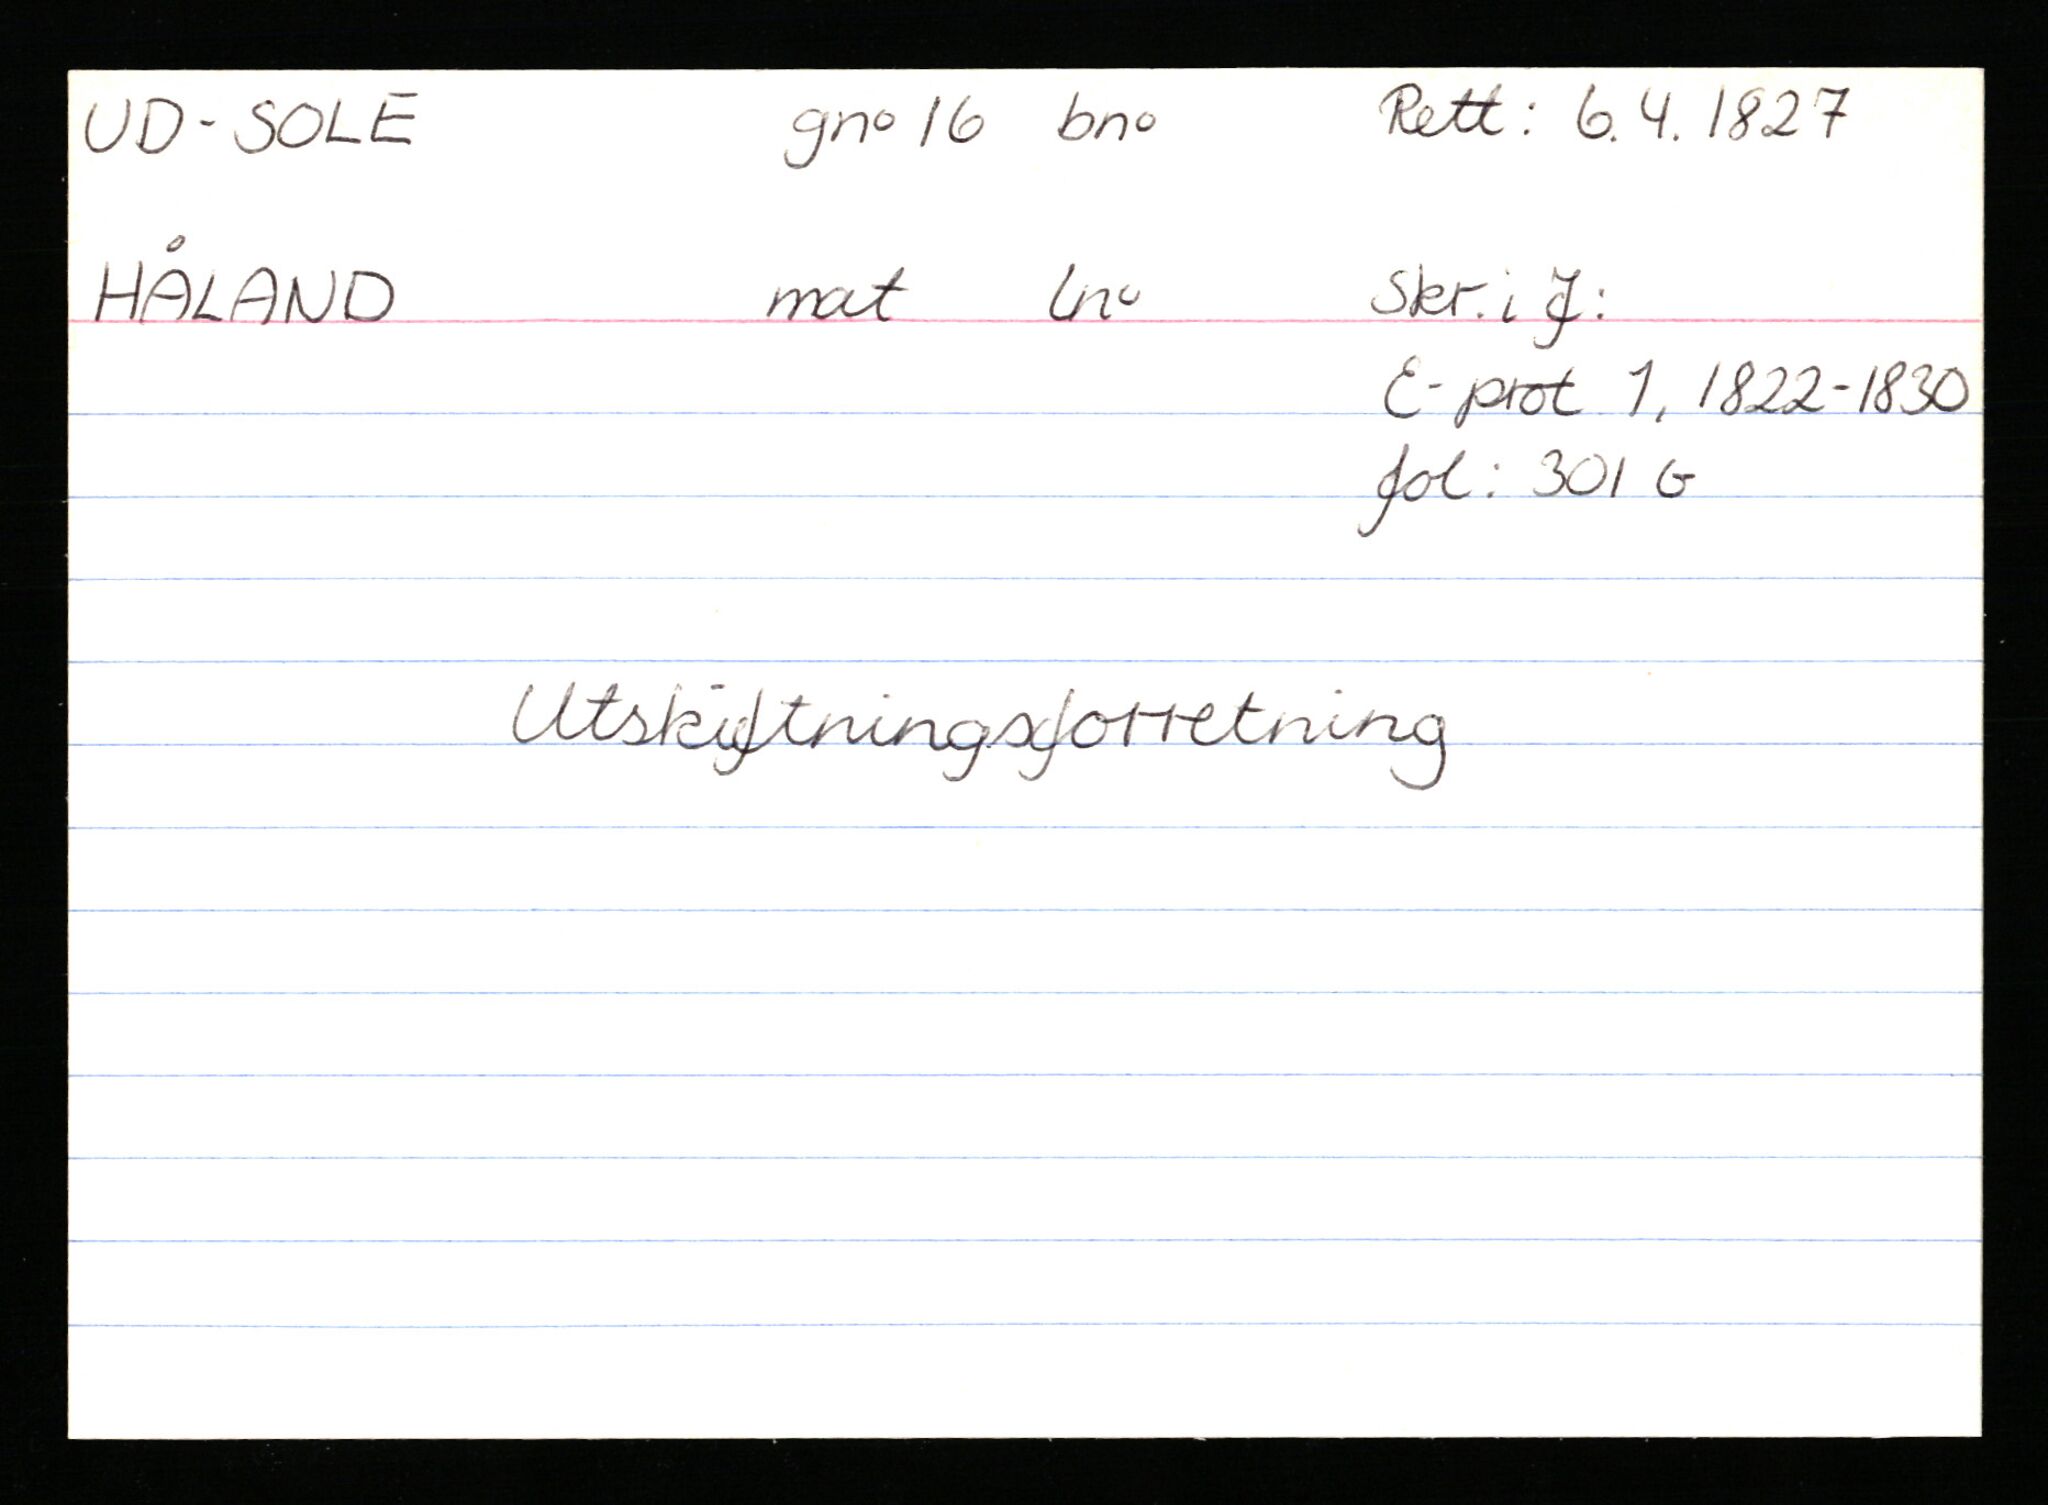 UD-SOLE gno 16 bno Rett: 6.4.1827
HÅLAND mat lno Skr. i J:
E-prot 1, 1822-1830
fol: 301 G
Utskiftningsforretning